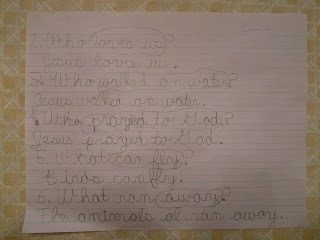 2. Who loves us?
Jesus loves us.
Who walked on water?
Jesus walked on water.
Who prayed to God?
Jesus prayed to God.
5. What can fly?
Birds can fly.
6. What ran away?
The animals al ran away.